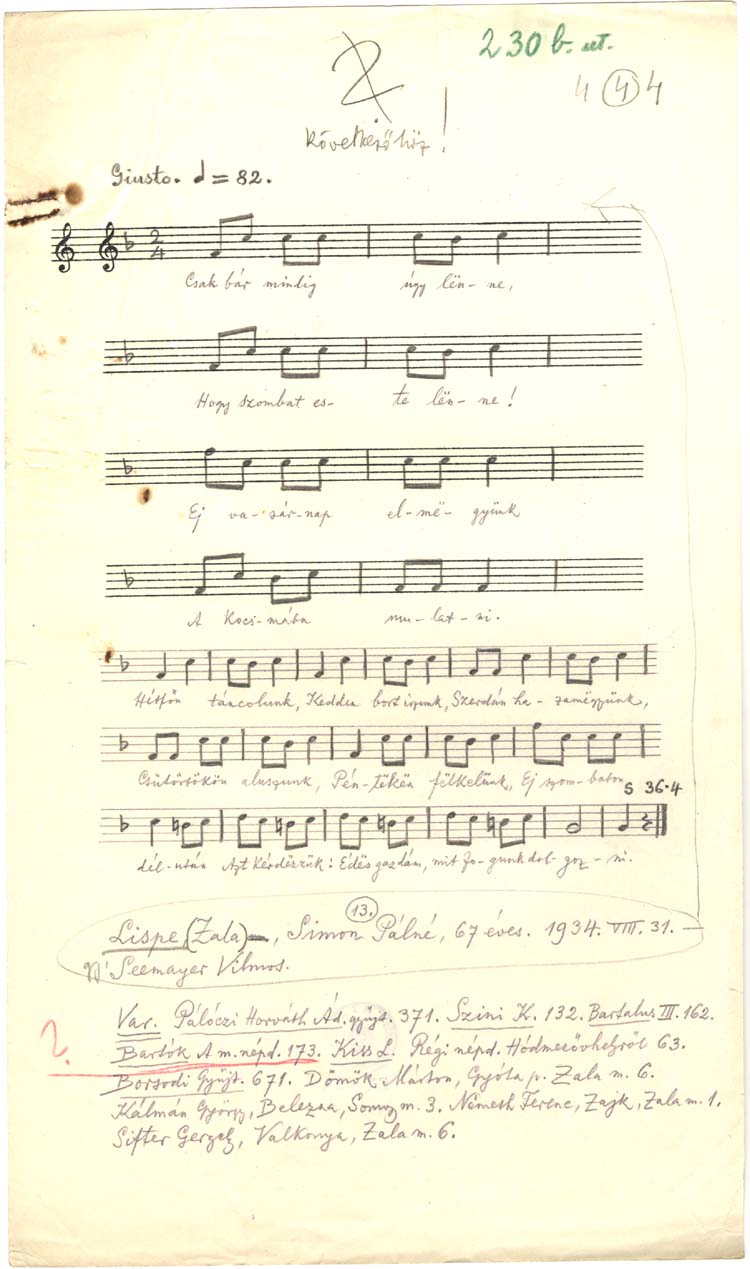 230 b. ut.
4 4 4
2
Következőhöz!
Giusto. = 82.
2
4
Csak bár mindig úgy lën-ne,
Hogy szombat es- te lën-ne!
Ej va-sár-nap el-më-gyünk
A kocs-mába mu-lat-ni.
Hétfőn táncolunk, Kedden bort iszunk, Szerdán ha-zamëgyünk,
Csütörtökön aluszunk, Pén-tëkën fëlkelünk, Ej szom-baton
S 36.4
dél-után Azt kérdëzzük: Édës gazdám, mit fo-gunk dol-goz-ni.
13.
Lispe (Zala), Simon Pálné, 67 éves. 1934. VIII. 31.
Seemayer Vilmos.
Var. Pálóczi Horváth Ád. gyűjt. 371. Szini K. 132. Bartalus III. 162.
?
Bartók A m. népd. 173. Kiss L. Régi népd. Hódmezővhelyről 63.
Borsodi Gyűjt. 671. Dömök Márton, Gyóta p. Zala m. 6.
Kálmán György, Belezna, Somogy m. 3. Németh Ferenc, Zajk, Zala m. 1.
Sifter Gergely, Valkonya, Zala m. 6.